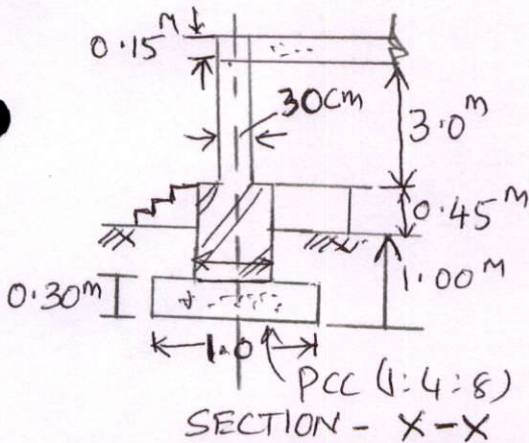 0.15 M
30cm
3.0 M
0.45 M
1.00 M
0.30 m
1.0
PCC (1:4:8)
SECTION - X-X